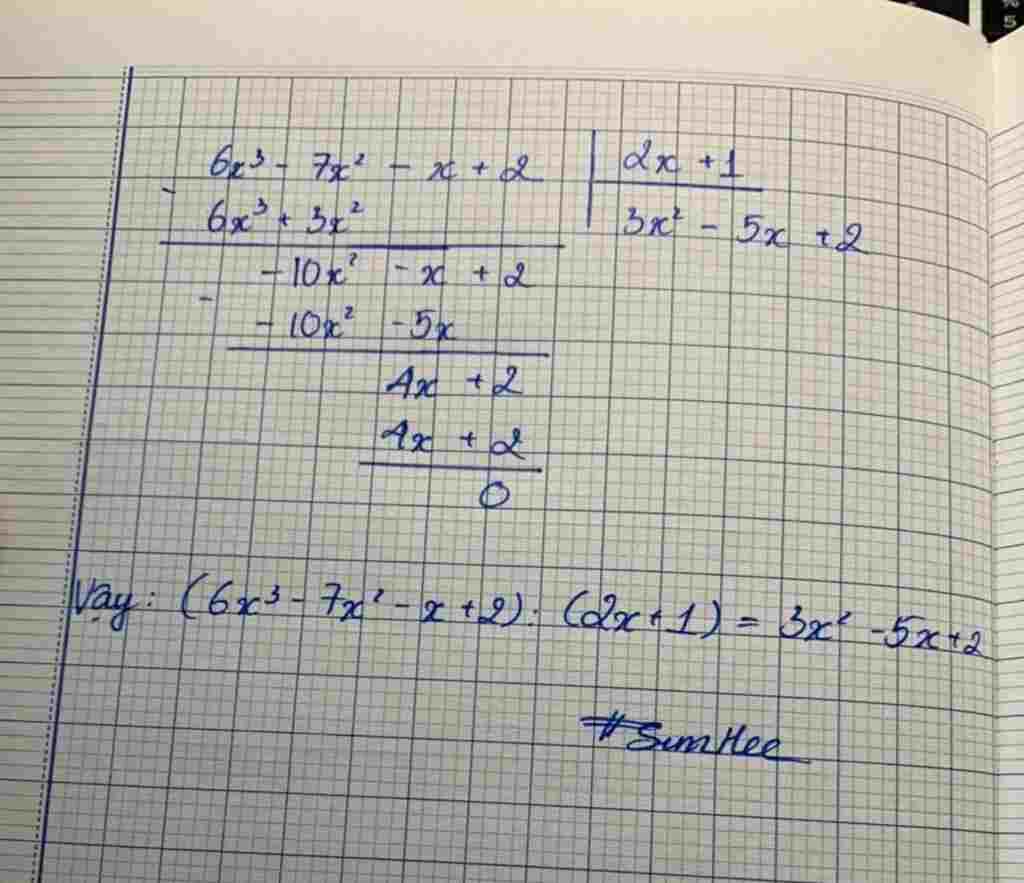 6x³ - 7x² - x + 2 | 2x + 1
- 6x³ + 3x² | 3x² - 5x + 2
-10x² - x + 2
- -10x² -5x
4x + 2
4x + 2
0
Vậy: (6x³ - 7x² - x + 2) : (2x + 1) = 3x² - 5x + 2
#SumHee